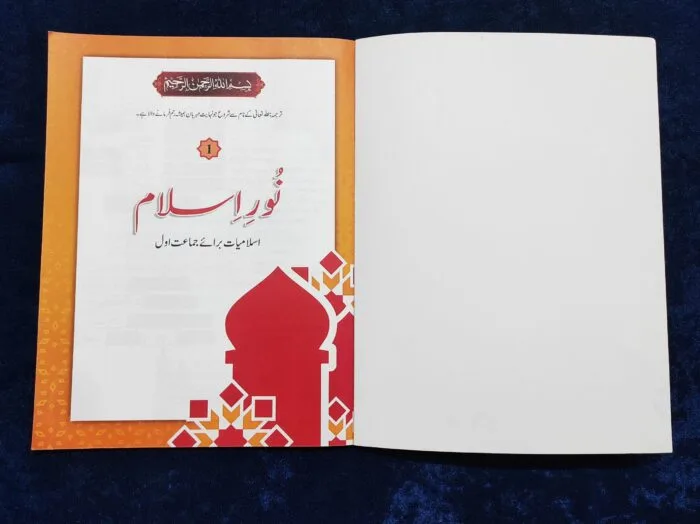 بسم الله الرحمن الرحيم
ترجمہ: اللہ تعالیٰ کے نام سے شروع جو نہایت مہربان ہمیشہ رحم فرمانے والا ہے۔
1
نُورِ اِسلام
اسلامیات برائے جماعت اول